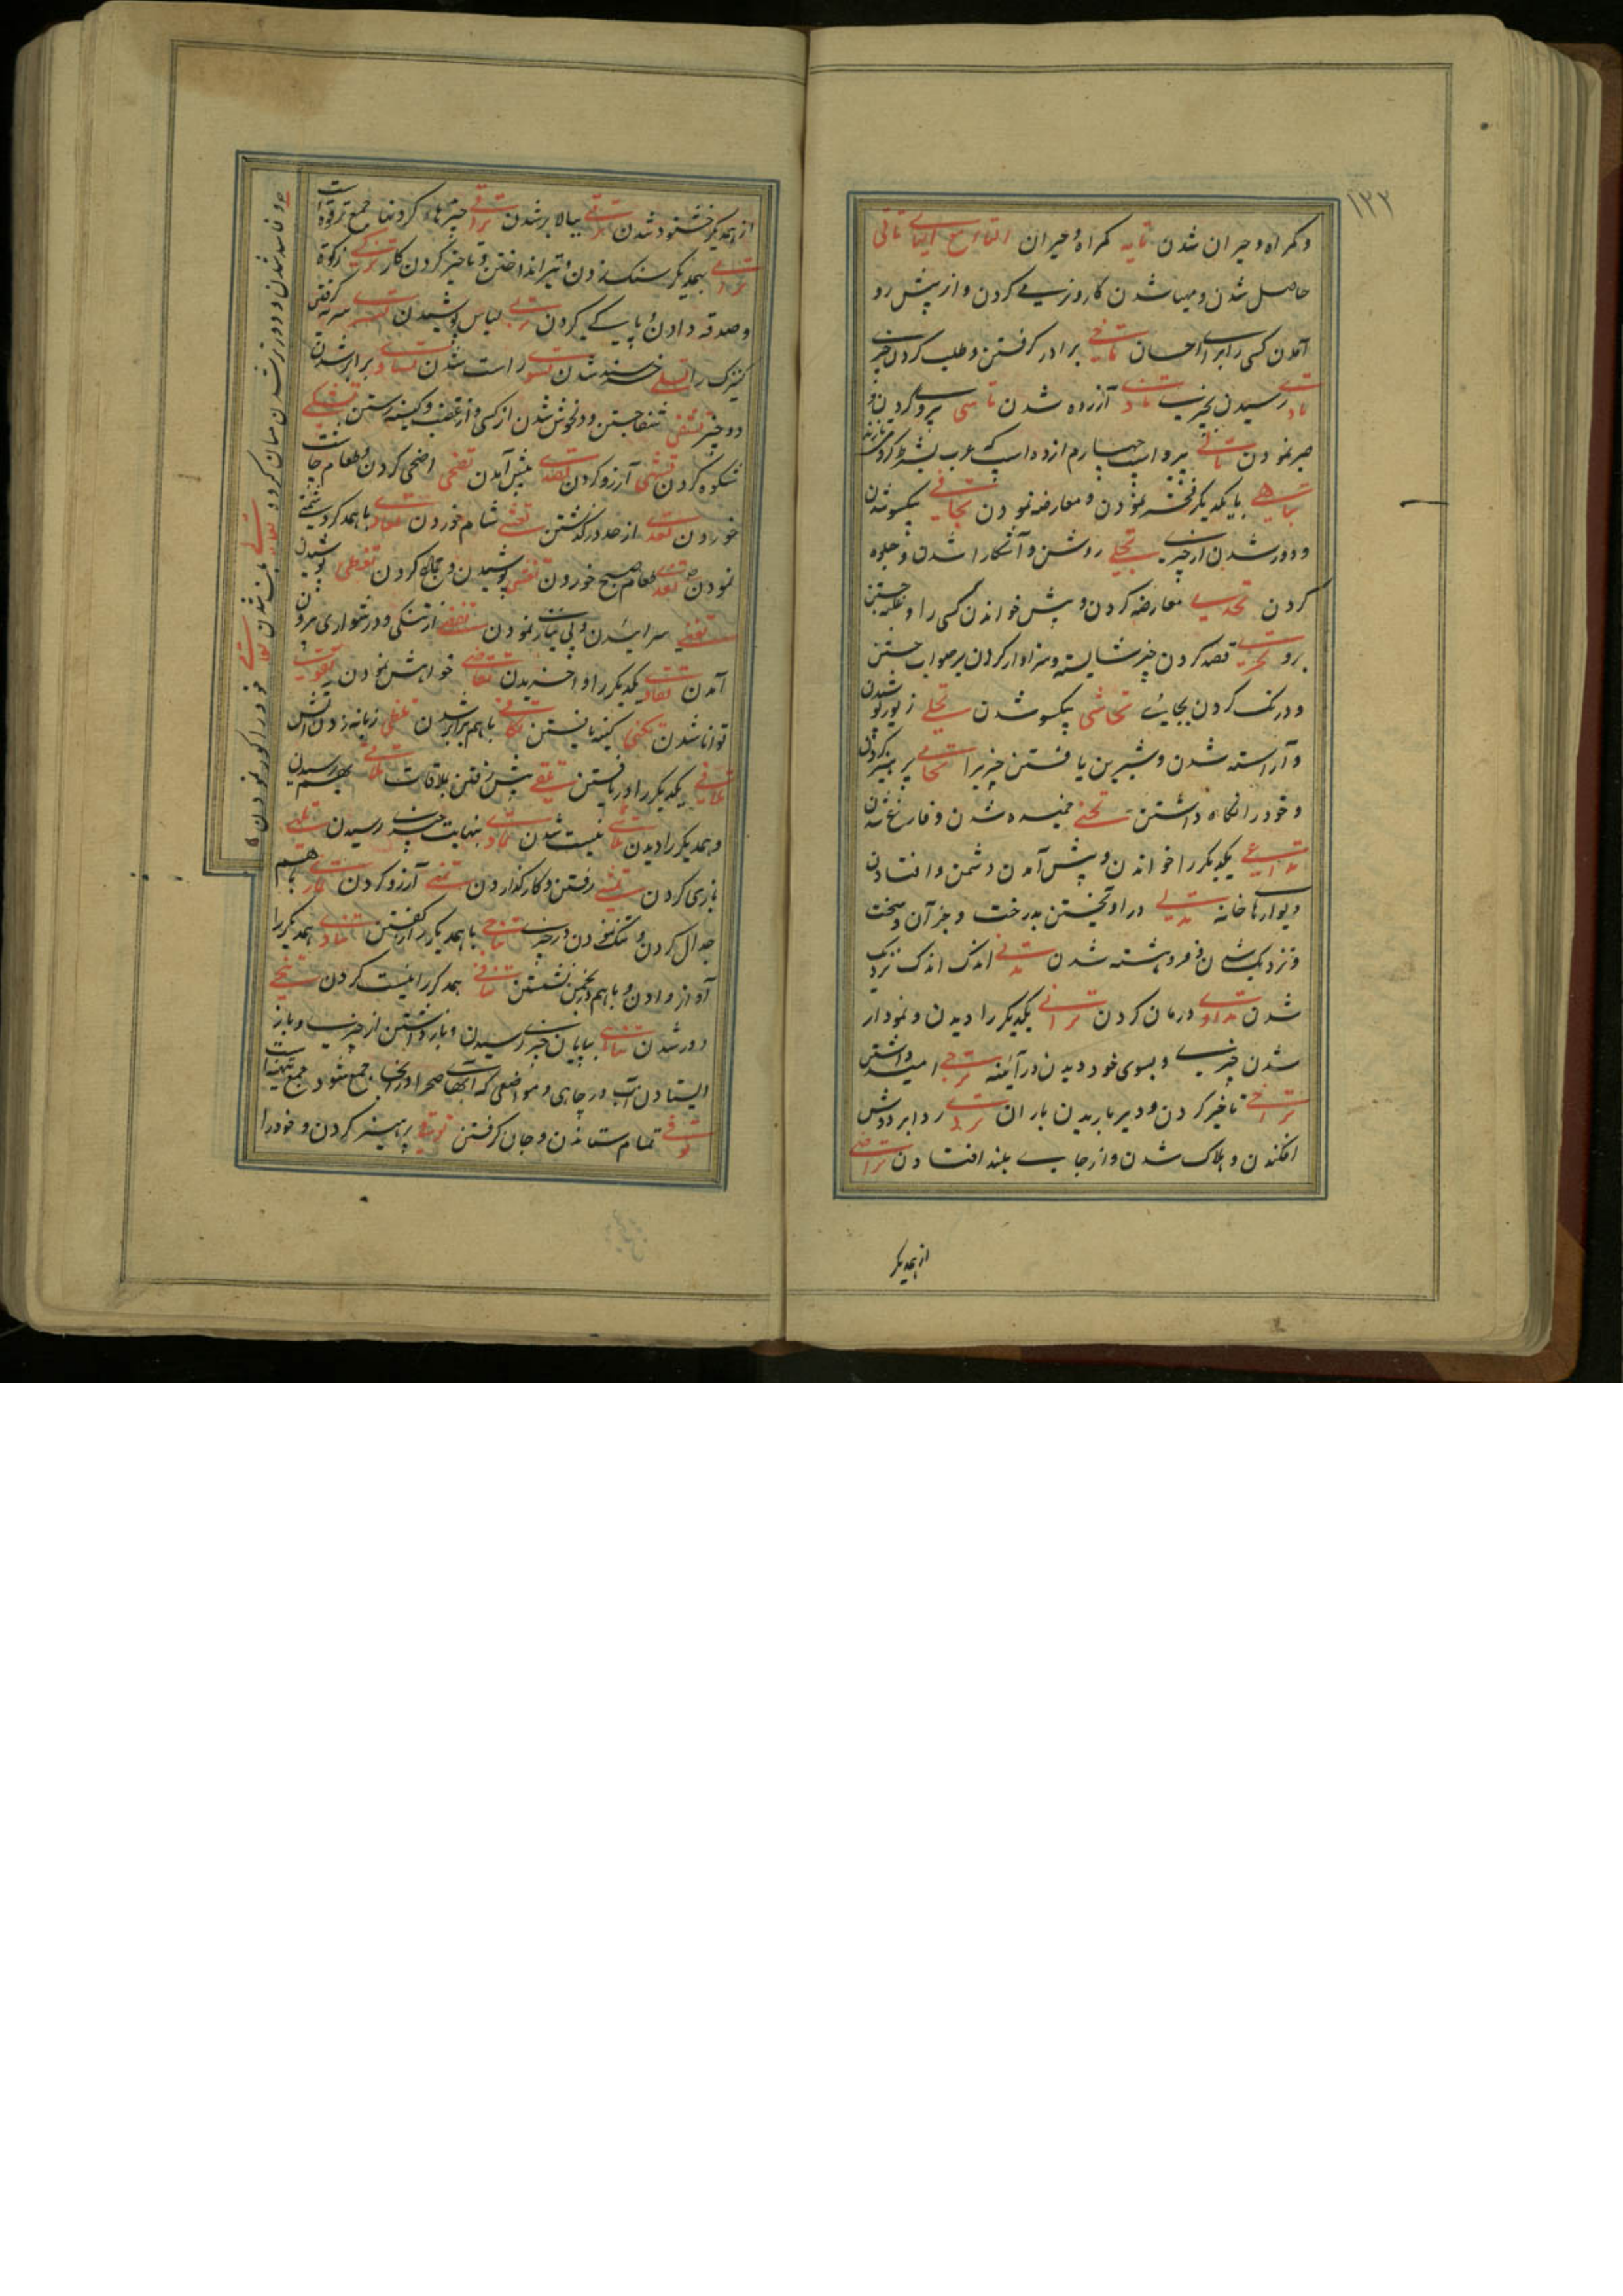 ۱۳۲
و کمراه و حیران شدن تایه کمراه و حیران التاء مع الیاء تاتی
حاصل شدن و مهیا شدن کار و نرمی کردن و از پیش رو
آمدن کسی را برای احسان تاخی برادر کرفتن و طلب کردن چیزی
تادی رسیدن بچیزی تاذی آزرده شدن تاسی پیروی کردن و
صبر نمودن
تباهی با یکدیکر فخر نمودن و معارضه نمودن تجافی یکسو شدن
و دور شدن از چیزی تجلی روشن و آشکارا شدن و جلوه
کردن تحدی معارضه کردن و پیش خواندن کسی را و غلبه جستن
برو تحری قصد کردن چیز شایسته و سزاوار کردن بر صواب جستن
و درنک کردن بجایی تحاشی یکسو شدن تحلی زیور پوشیدن
و آراسته شدن و شیرین یافتن چیزیرا تحامی پرهیز کردن
و خود را نکاه داشتن تحنی خمیده شدن و فارغ شدن
تداعی یکدیکر را خواندن و پیش آمدن دشمن و افتادن
دیوارها خانه تدلی در آویختن بدرخت و جز آن و سخت
و نزدیک شدن و فروهشته شدن تدنی اندک اندک نزدیک
شدن تداوی درمان کردن ترائی یکدیکر را دیدن و نمودار
شدن چیزی و بسوی خود دیدن در آینه ترجی امید داشتن
تراخی تاخیر کردن و دیر باریدن باران تردی ردا بر دوش
افکندن و هلاک شدن و از جایی بلند افتادن تراضی
از همدیکر
از همدیکر خشنود شدن ترقی ببالا بر شدن تراقی چنبرهاء کردنها جمع ترقوه است
ترامی بهمدیکر سنک زدن و تیر انداختن و تاخیر کردن کار تزکی زکوة
و صدقه دادن و پاکی کردن تزیی لباس پوشیدن تسری سریه کرفتن
کنیزک را تسلی خرسند شدن تسوی راست شدن تساوی برابر شدن
دو چیز تشفی شفا جستن و دلخوش شدن از کسی و از غضب و کینه رستن تشکی
شکوه کردن تشهی آرزو کردن تصدی پیش آمدن تضحی اضحی کردن و طعام چاشت
خوردن تعدی از حد در کذشتن تعشی شام خوردن تعادی با همدکر دشمنی
نمودن تغدی طعام صبح خوردن تغشی پوشیدن و جماع کردن تغطی پوشیدن
تغنی سراییدن و بی نیازی نمودن تفصی از تنکی و دشواری بیرون
آمدن تفادی یکدیکر را وا خریدن تقاضی خواهش نمودن تقوی
توانا شدن تکنی کنیه یافتن تکافی با هم برابر شدن تلظی زبانه زدن آتش
تلافی یکدیکر را در یافتن تلقی پیش رفتن بلاقات تلاقی بهم رسیدن
و همدیکر را دیدن تلاشی نیست شدن تمادی بنهایت چیزی رسیدن تلهی
بازی کردن تمشی رفتن و کار کذاردن تمنی آرزو کردن تماری با هم
جدال کردن و شک نمودن در چیزی تناجی با همدیکر راز کفتن تنادی همدیکر را
آواز دادن و با هم در انجمن نشستن تنافی همدکر را نیست کردن تنحی
دور شدن تناهی بپایان چیزی رسیدن و باز داشتن از چیزی و باز
ایستادن آب در چاهی و مواضعی که آبهای صحرا در آنجا جمع شود جمع تنهیة است
توفی تمام ستاندن و جان کرفتن توقی پرهیز کردن و خود را